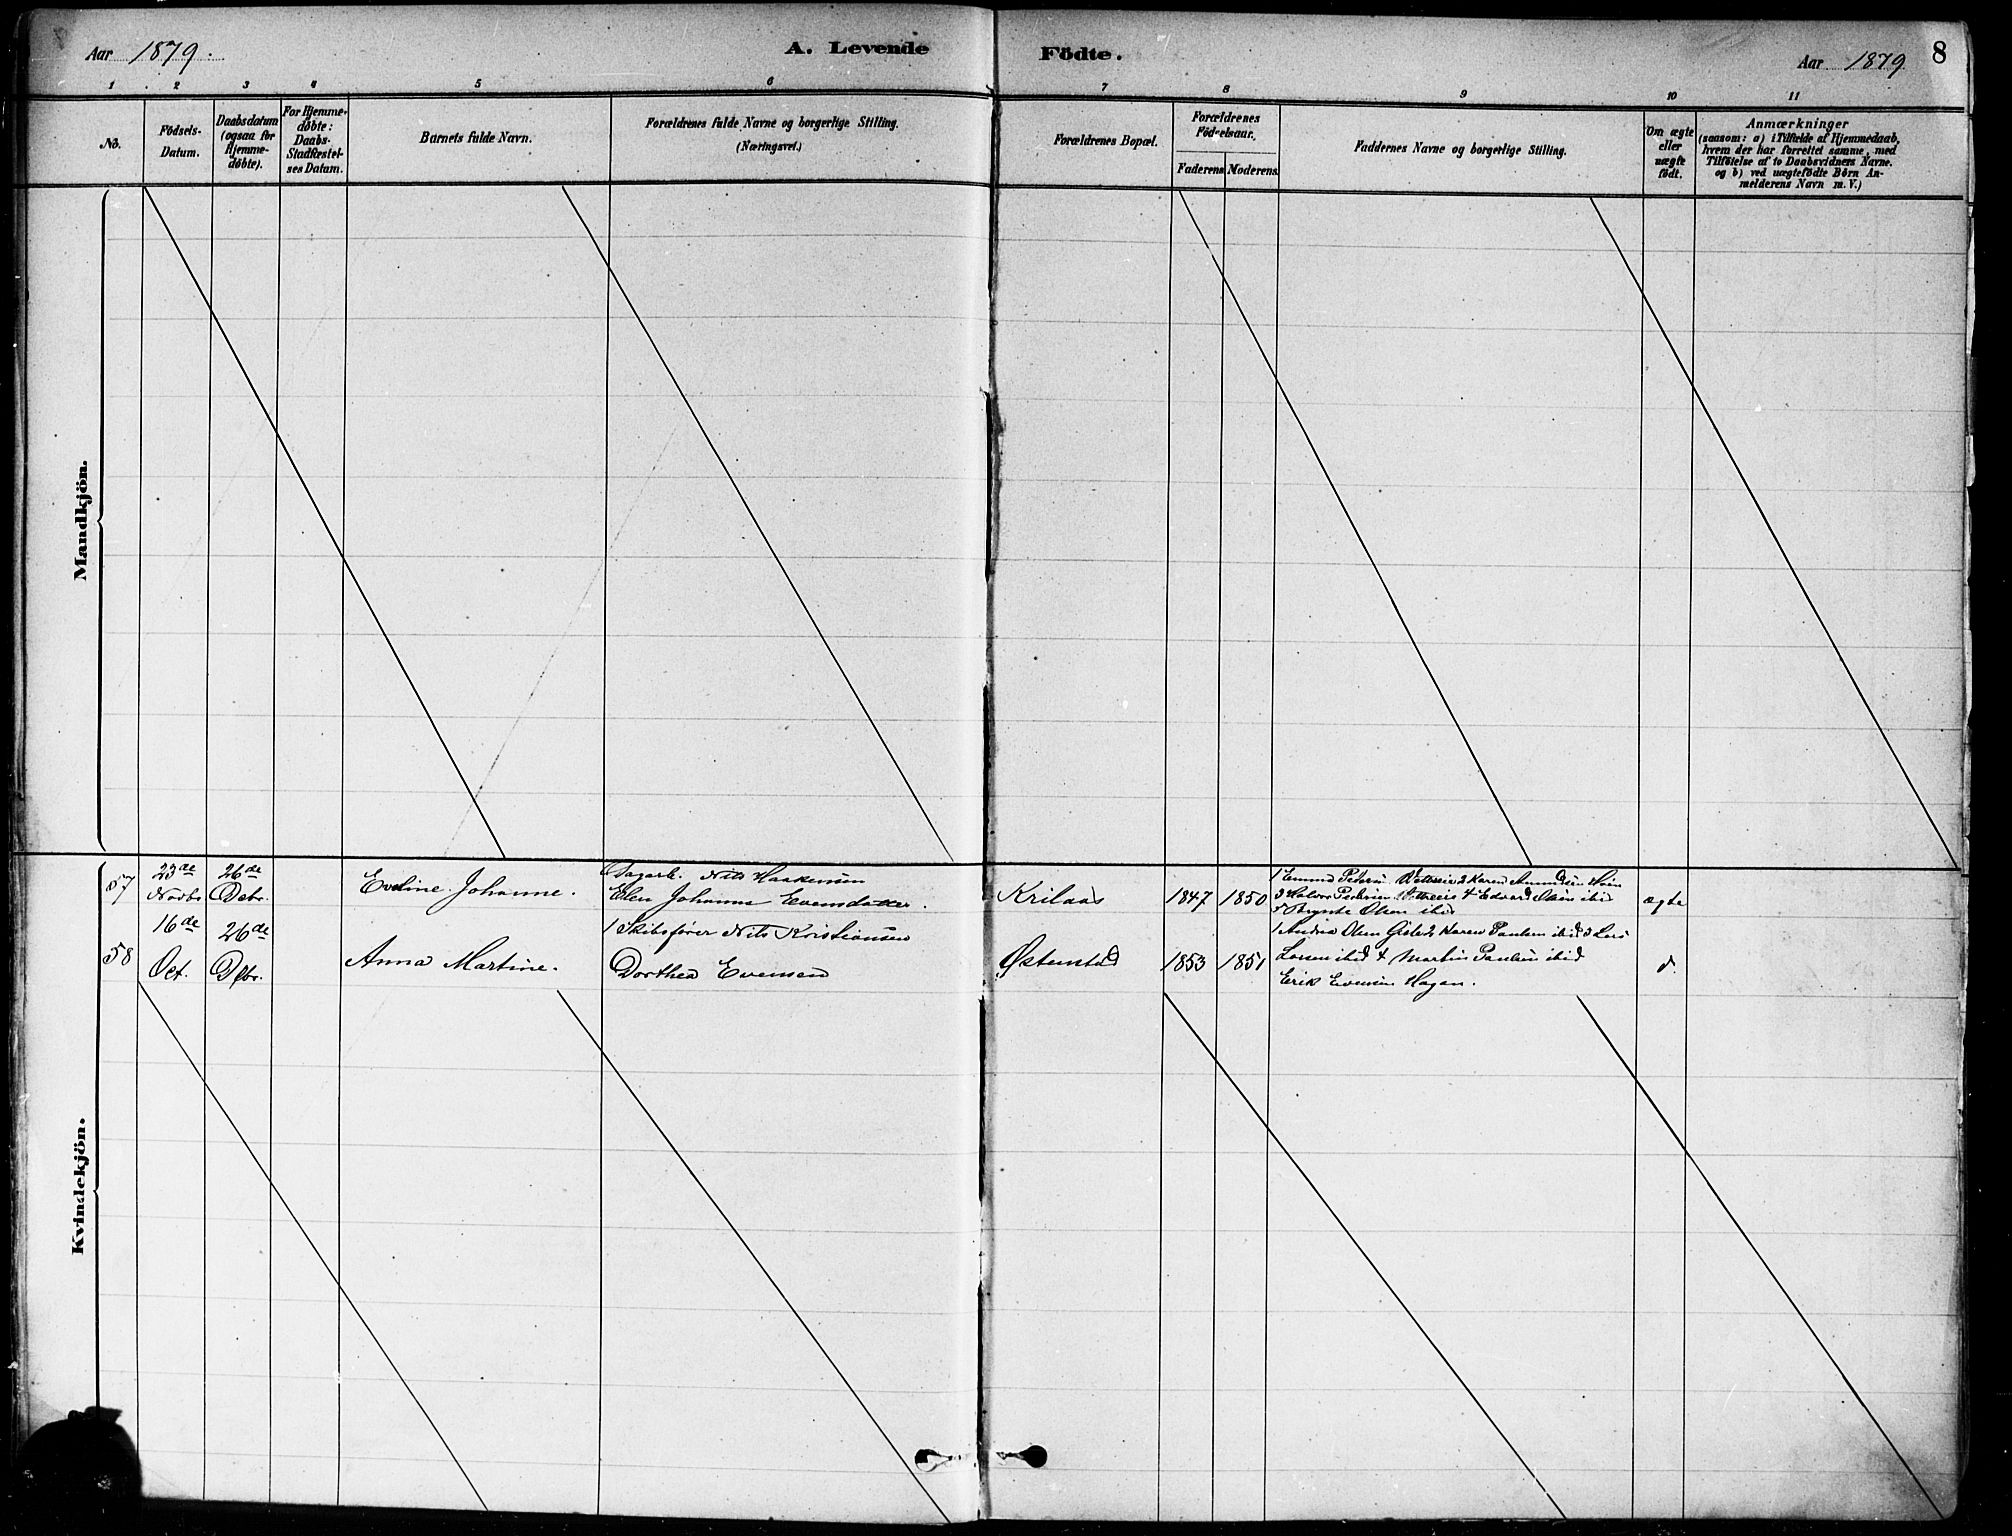 Aar 1879.
A. Levende Födte.
Aar 1879
8
1 2 3 4 5 6 7 8 9 10 11
No.
Födsels-
Datum.
Daabsdatum
(ogsaa for
Hjemme-
döbte).
For Hjemme-
döbte:
Daabs-
Stadfæstel-
ses Datum.
Barnets fulde Navn.
Forældrenes fulde Navne og borgerlige Stilling.
(Næringsvei.)
Forældrenes Bopæl.
Forældrenes
Födselsaar.
Faderens Moderens.
Faddernes Navne og borgerlige Stilling.
Om ægte
eller
uægte
födt.
Anmærkninger
(saasom: a) i Tilfælde af Hjemmedaab,
hvem der har forrettet samme, med
Tilföielse af to Daabsvidners Navne.
og b) ved uægtefödte Börn An-
melderens Navn m. V.)
Mandkjön.
Kvindekjön.
57
23de
Novbr
26de
Debr.
Eveline Johanne.
Dagarb. Nils Haakensen
Elen Johanne Evensdatter.
Krilaas
1847
1850
1 Emund Peders. 2 Karen
3 Halvor Pedersen 4 Edvard Olsen ibid
5 Olsen ibid
ægte
58
16de
Oct.
26de
Debr.
Anna Martine.
Skibsfører Nils Kristiansen
Dorthea Evensen
Østenstad
1853
1851
1 Olsen 2 Karen Paulsen ibid 3 Lars
Larsen ibid 4 Martin Paulsen ibid
Erik Evensen Hagan.
d.